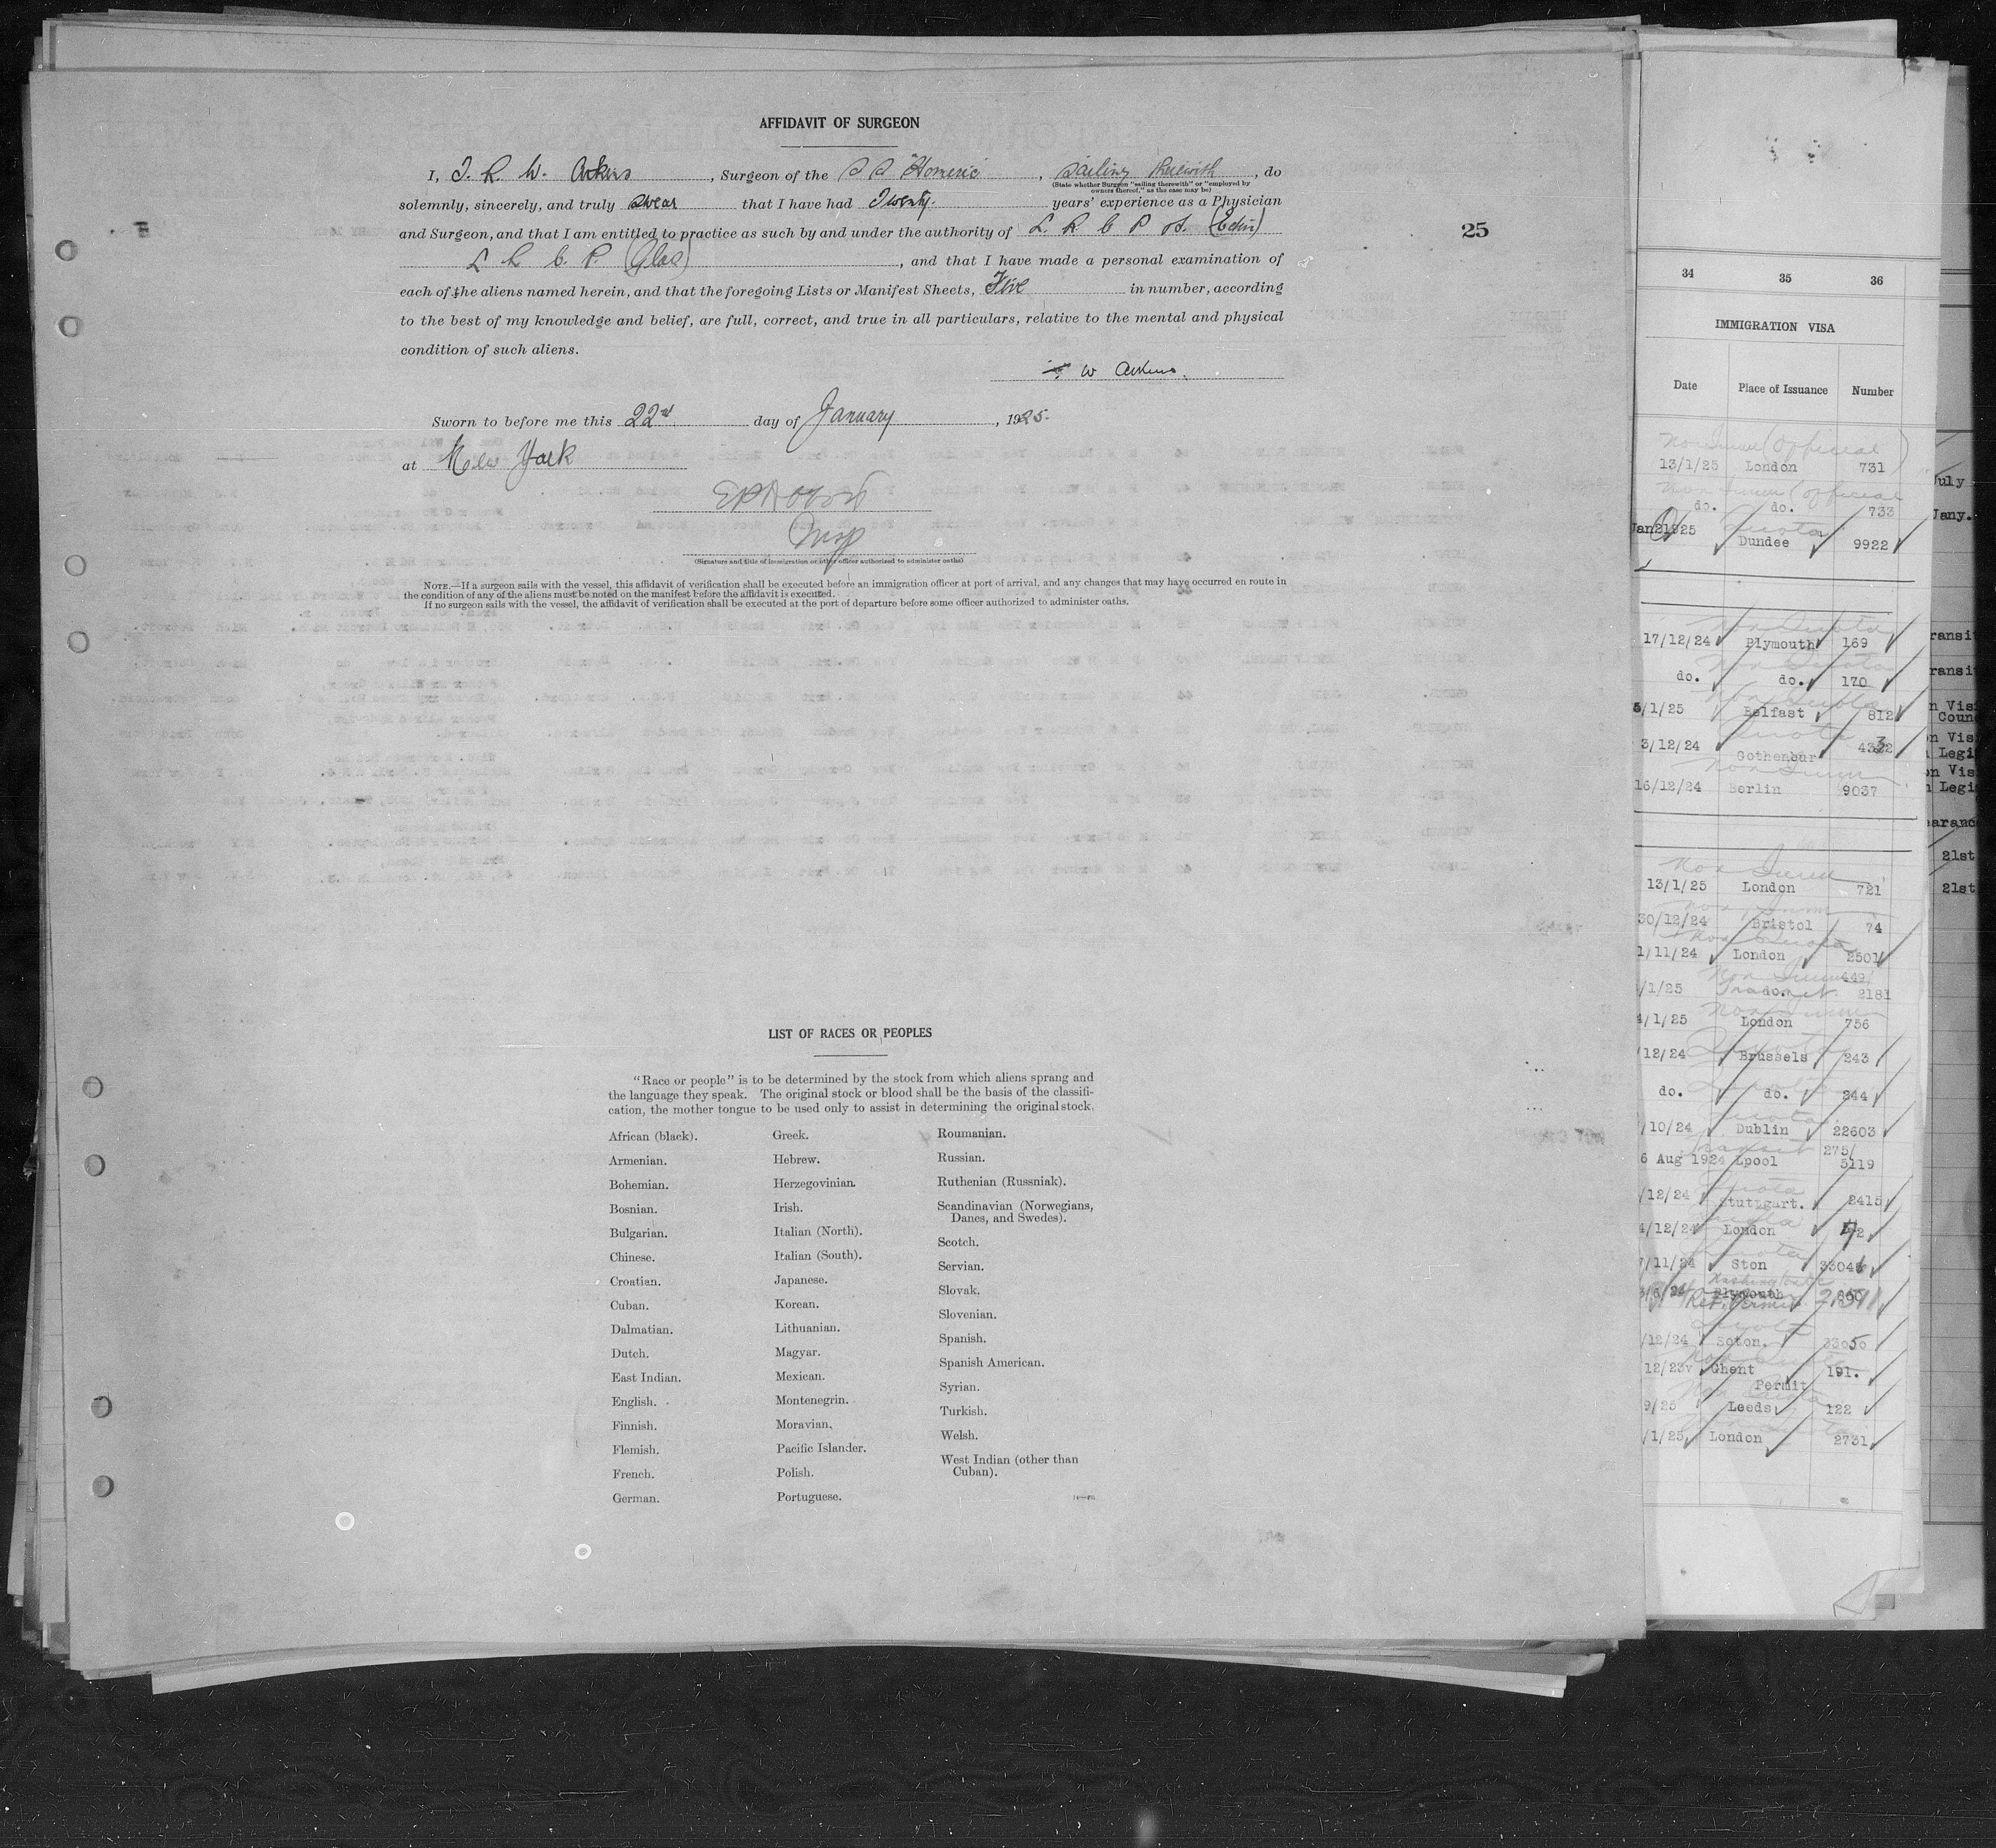 AFFIDAVIT OF SURGEON
I, W. Atkins, Surgeon of the S S "Homeric", Sailing therewith, do
(State whether Surgeon "sailing therewith" or "employed by
owners thereof," as the case may be)
solemnly, sincerely, and truly swear that I have had Twenty years' experience as a Physician
and Surgeon, and that I am entitled to practice as such by and under the authority of L. R. C. P. S. (Edin)
, and that I have made a personal examination of
each of the aliens named herein, and that the foregoing Lists or Manifest Sheets, Five in number, according
to the best of my knowledge and belief, are full, correct, and true in all particulars, relative to the mental and physical
condition of such aliens.
W Atkins.
Sworn to before me this 22nd day of January, 1925.
at New York
Insp
(Signature and title of immigration or other officer authorized to administer oaths)
NOTE.—If a surgeon sails with the vessel, this affidavit of verification shall be executed before an immigration officer at port of arrival, and any changes that may have occurred en route in
the condition of any of the aliens must be noted on the manifest before the affidavit is executed.
If no surgeon sails with the vessel, the affidavit of verification shall be executed at the port of departure before some officer authorized to administer oaths.
25
LIST OF RACES OR PEOPLES
"Race or people" is to be determined by the stock from which aliens sprang and
the language they speak. The original stock or blood shall be the basis of the classifi-
cation, the mother tongue to be used only to assist in determining the original stock.
African (black).
Armenian.
Bohemian.
Bosnian.
Bulgarian.
Chinese.
Croatian.
Cuban.
Dalmatian.
Dutch.
East Indian.
English.
Finnish.
Flemish.
French.
German.
Greek.
Hebrew.
Herzegovinian.
Irish.
Italian (North).
Italian (South).
Japanese.
Korean.
Lithuanian.
Magyar.
Mexican.
Montenegrin.
Moravian.
Pacific Islander.
Polish.
Portuguese.
Roumanian.
Russian.
Ruthenian (Russniak).
Scandinavian (Norwegians,
Danes, and Swedes).
Scotch.
Servian.
Slovak.
Slovenian.
Spanish.
Spanish American.
Syrian.
Turkish.
Welsh.
West Indian (other than
Cuban).
34 35 36
IMMIGRATION VISA
Date Place of Issuance Number
Non Imm (Official)
13/1/25 London 731
Non Imm (Official
do. do. 733
Quota
Jan 21925 Dundee 9922
Non Quota
17/12/24 Plymouth 169
Non Quota
do. do. 170
Non Quota
5/1/25 Belfast 812
Quota
3/12/24 Gothenbur
Non Imm
16/12/24 Berlin 9037
Non Imm
13/1/25 London 721
Non Imm
30/12/24 Bristol 74
Non Quota
1/11/24 London 2501
Non Imm 449/
/1/25 do. 2181
Non Imm
4/1/25 London 756
Quota
/12/24 Brussels 243
do. do. 244
Quota
/10/24 Dublin 22603
Transit 275/
6 Aug 1924 Lpool 5119
Quota
/12/24 Stuttgart. 2415
Quota
4/12/24 London
Quota
7/11/24 Ston
Plymouth
Quota
/12/24 Soton. 33050
12/23 Ghent 191.
Permit
Non Quota
9/25 Leeds 122
/1/25 London 2731
July
Jany.
ransit
ransit
n Vis
Coun
on Vis
n Legi
on Vis
n Legi
earanc
21st
21st